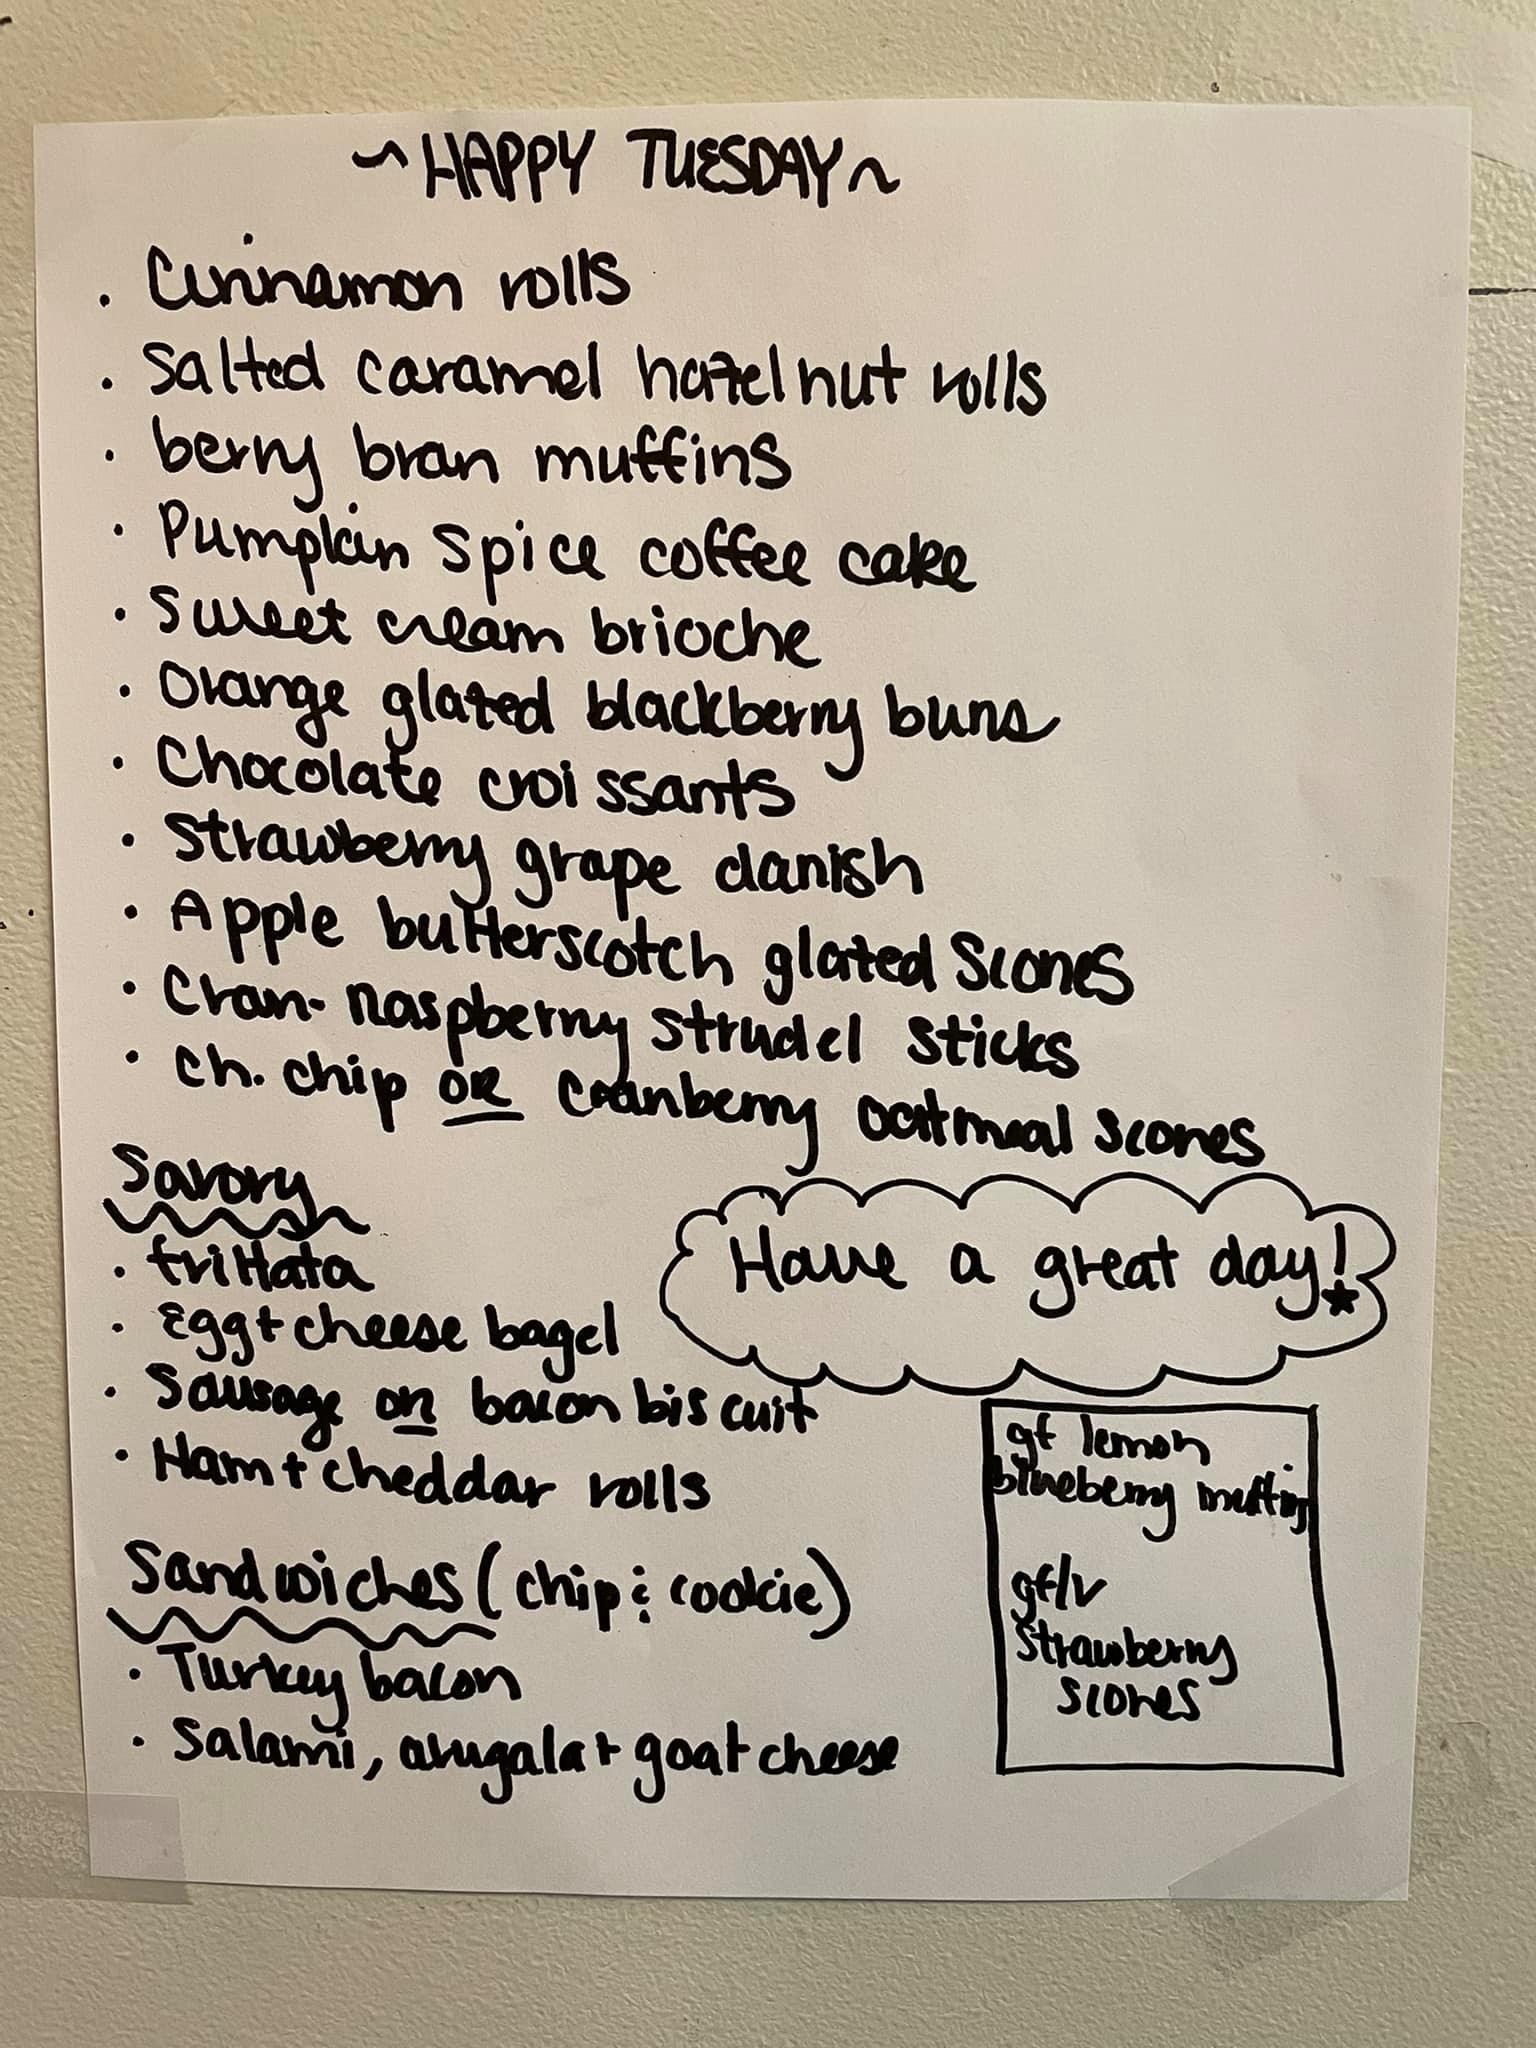 ~HAPPY TUESDAY~
· Cinnamon rolls
· Salted caramel hazelnut rolls
· berry bran muffins
· Pumpkin spice coffee cake
· Sweet cream brioche
· Orange glazed blackberry buns
· Chocolate croissants
· Strawberry grape danish
· Apple butterscotch glazed Scones
· Cran-raspberry strudel sticks
· Ch. chip OR cranberry oatmeal scones
Savory
· frittata
· Egg + cheese bagel
· Sausage on bacon biscuit
· Ham + cheddar rolls
Have a great day!
gf lemon
blueberry muffins
gf/v
Strawberry
scones
Sandwiches (chip & cookie)
· Turkey bacon
· Salami, arugala + goat cheese